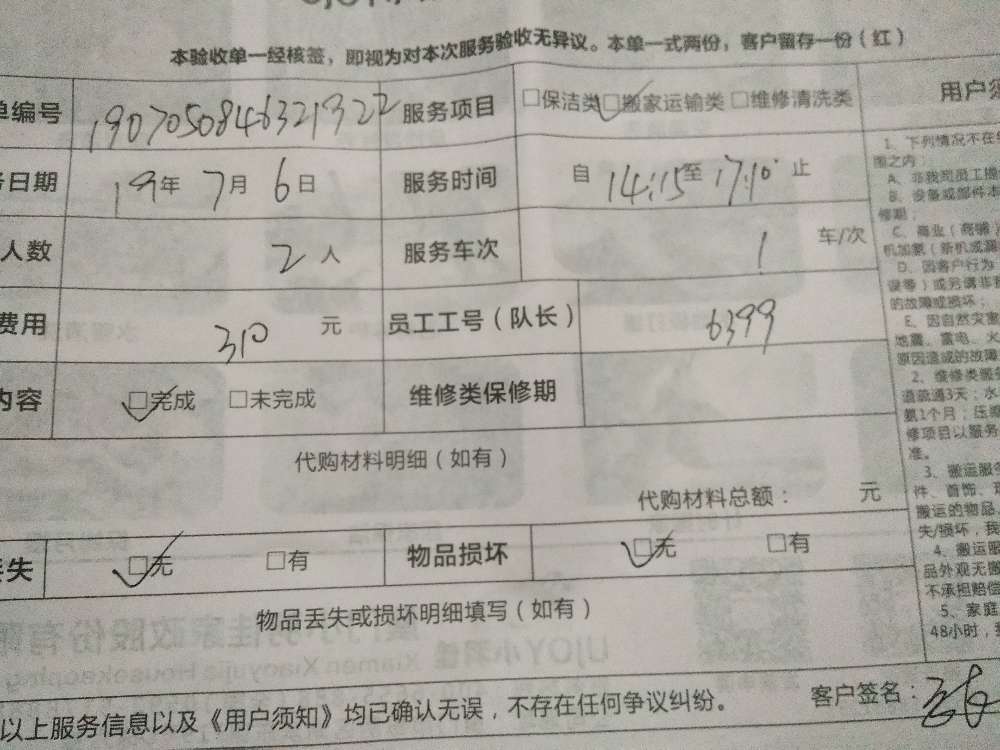 本验收单一经核签，即视为对本次服务验收无异议。本单一式两份，客户留存一份（红）
单编号 1907050846321322 服务项目 □保洁类 □搬家运输类 □维修清洗类
务日期 19年 7月 6日 服务时间 自 14:15 至 17:10 止
人数 2 人 服务车次 1 车/次
费用 310 元 员工工号（队长） 6399
内容 □完成 □未完成 维修类保修期
代购材料明细（如有）
代购材料总额： 元
丢失 □无 □有 物品损坏 □无 □有
物品丢失或损坏明细填写（如有）
以上服务信息以及《用户须知》均已确认无误，不存在任何争议纠纷。 客户签名：
用户须
1、下列情况不在
围之内：
A、非我司员工
B、设备或部件本
修期；
C、商业（商铺）
机加氟（新机或漏
D、因客户行为
误等）或另请非
的故障或损坏；
E、因自然灾害
地震、雷电、火
原因造成的故障
2、维修类服务
道疏通3天；水
氨1个月；压缩
修项目以服务
准。
3、搬运服务
件、首饰、现
搬运的物品，
失/损坏，我
4、搬运服
品外观无搬
不承担赔偿
5、家庭
48小时，